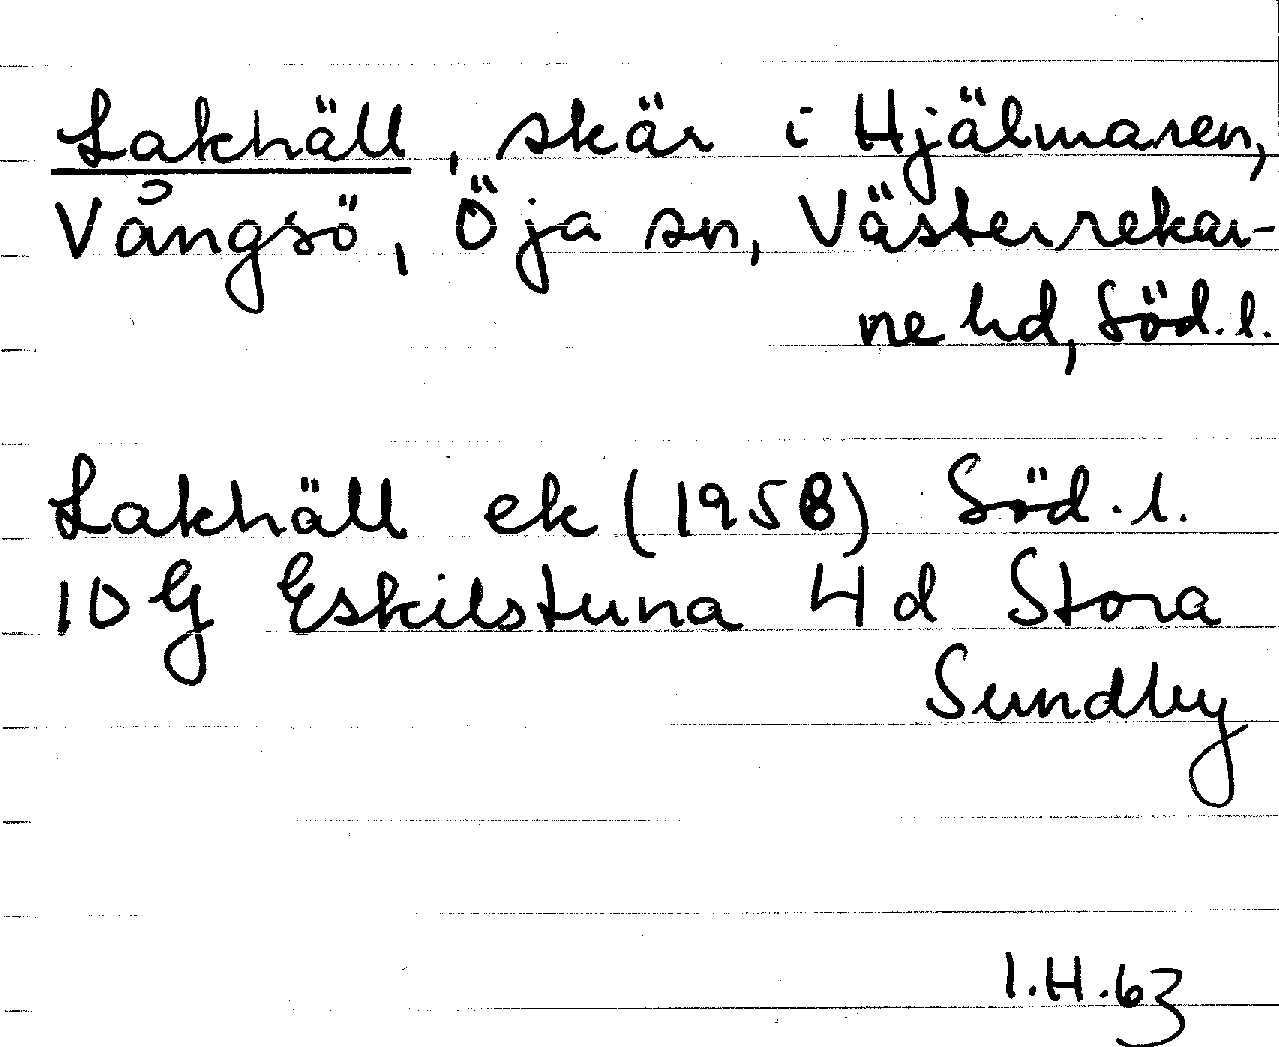 Lakhäll, skär i Hjälmaren,
Vångsö, Öja sn, Västerrekar-
ne hd, Söd. l.
Lakhäll ek (1958) Söd. l.
10 G Eskilstuna 4 d Stora
Sundby
I.H. 63